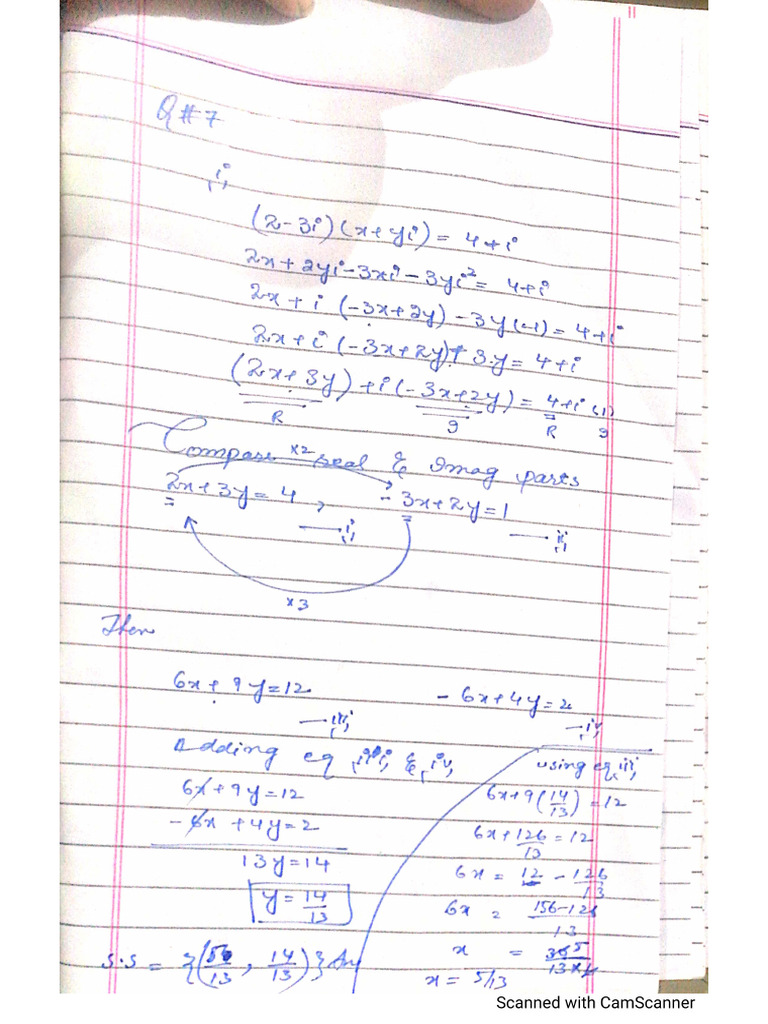 Q#7
i,
(2-3i)(x+yi) = 4+i
2x+2yi-3xi-3yi²= 4+i
2x+i (-3x+2y)-3y(-1)=4+i
2x+i (-3x+2y)+3y=4+i
(2x+3y)+i(-3x+2y)=4+i(1)
R I R I
Compare x2 real & Imag parts
2x+3y=4, -3x+2y=1
i, ii,
x3
Then
6x+9y=12 -6x+4y=2
iii, iv,
Adding eq iii, & iv,
6x+9y=12
-6x+4y=2
13y=14
y=14/13
using eq iii,
6x+9(14/13)=12
6x+126/13=12
6x=12-126/13
6x=156-126/13
x=5/13
S.S={(5/13, 14/13)}Ans
Scanned with CamScanner